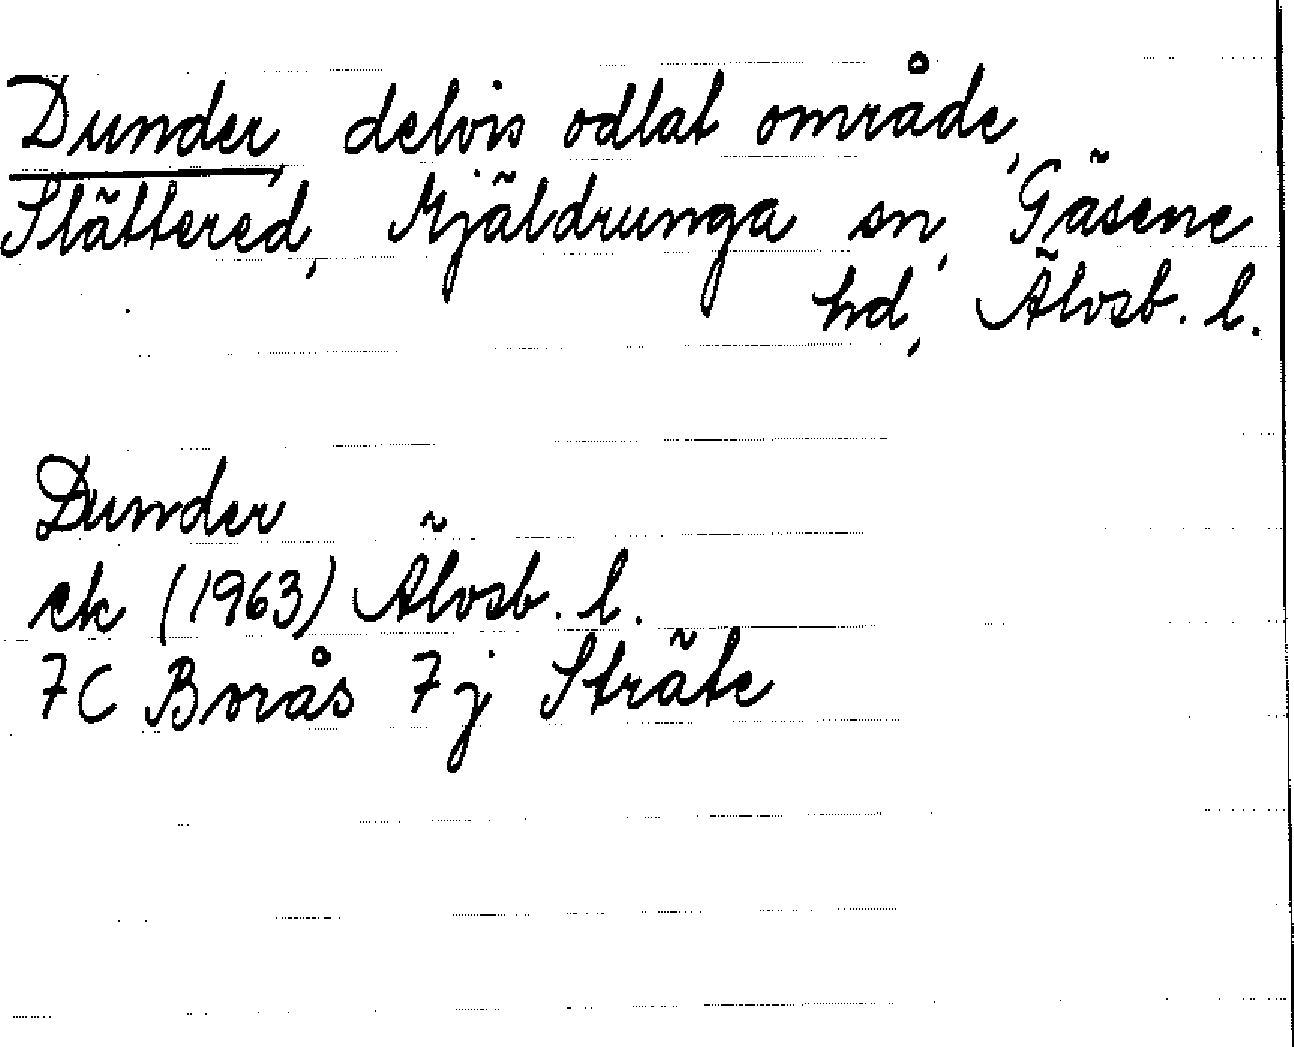 Dunder, delvis odlat område,
Slättered, Mjäldrunga sn, Gäsene
hd, Älvsb. l.
Dunder
ek (1963) Älvsb. l.
7C Borås 7j Sträte